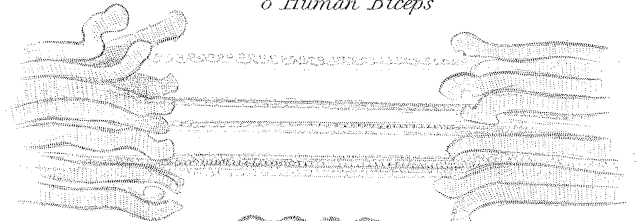 6 Human Biceps